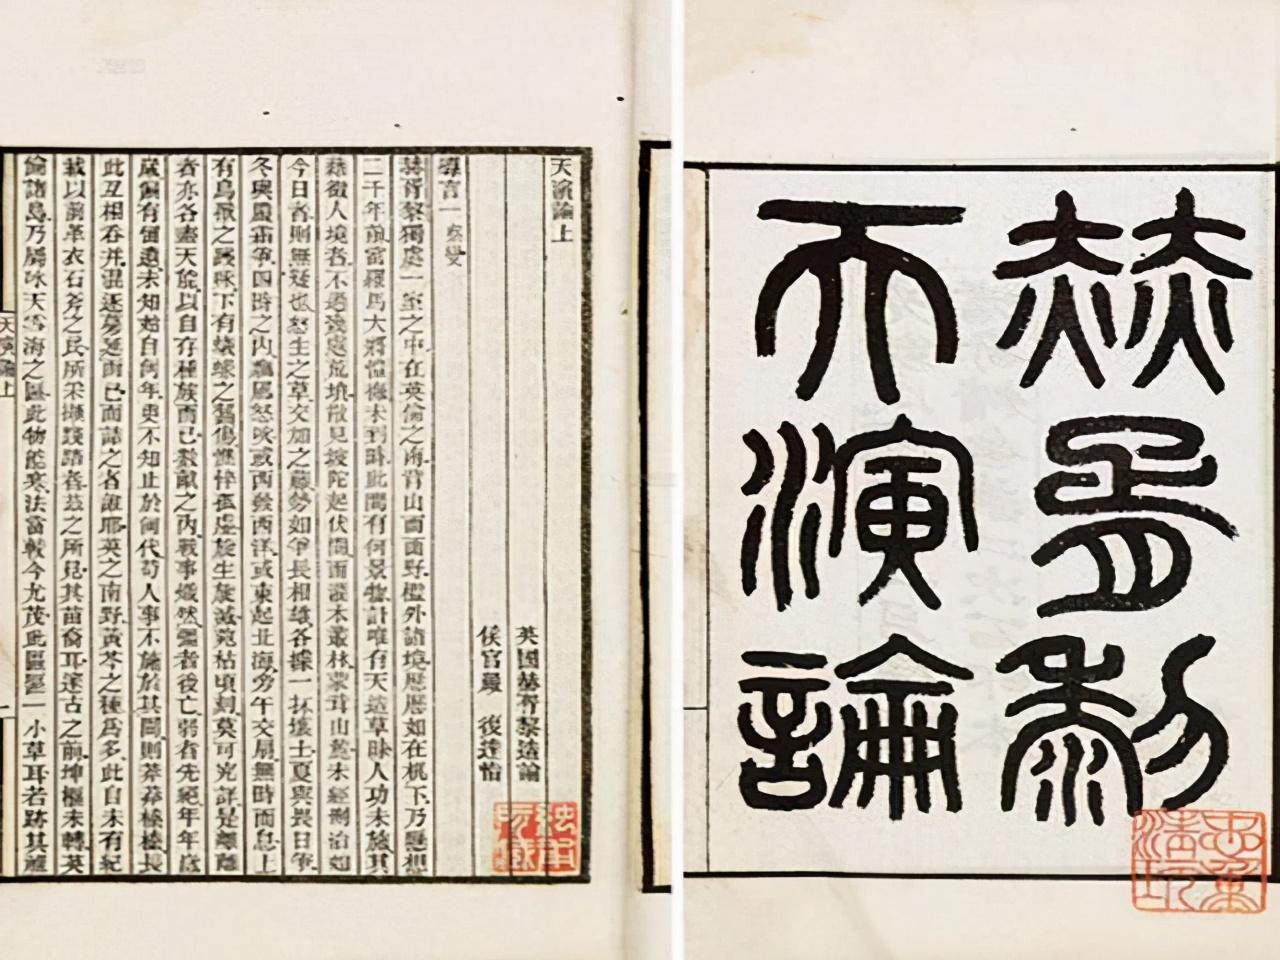 赫胥黎
天演論
天演論上
英國赫胥黎造論
侯官嚴 復達恉
導言一 察變
赫胥黎獨處一室之中在英倫之南背山而面野檻外諸境歷歷如在机下乃懸想
二千年前當羅馬大將愷徹未到時此間有何景物計唯有天造草昧人功未施其
藉徵人境者不過幾處荒墳散見坡陀起伏間而灌木叢林蒙茸山麓未經刪治如
今日者則無疑也怒生之草交加之藤勢如爭長相雄各據一抔壤土夏與畏日爭
冬與嚴霜爭四時之內飄風怒吹或西發西洋或東起北海旁午交扇無時而息上
有鳥獸之踐啄下有蟻蝝之齧傷憔悴孤虛旋生旋滅菀枯頃刻莫可究詳是離離
者亦各盡天能以自存種族而已數畝之內戰事熾然彊者後亡弱者先絕年年歲
歲偏有留遺未知始自何年更不知止於何代苟人事不施於其間則莽莽榛榛長
此互相吞并混逐蔓延而已而詰之者誰耶英之南野黃芩之種爲多此自未有紀
載以前革衣石斧之民所采擷踐踏者茲之所見其苗裔耳邃古之前坤樞未轉英
倫諸島乃屬冰天雪海之區此物能寒法當較今尤茂此區區一小草耳若跡其
天演論上
一